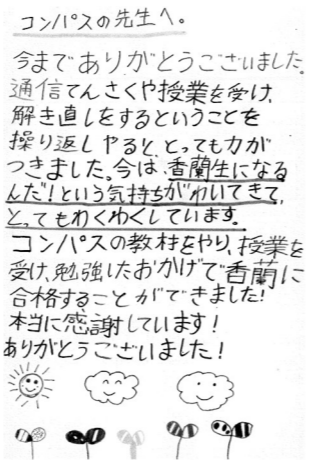 コンパスの先生へ。
今までありがとうございました。
通信てんさくや授業を受け、
解き直しをするということを
操り返しやると、とっても力が
つきました。今は、香蘭生になる
んだ!という気持ちがわいてきて、
とってもわくわくしています。
コンパスの教材をやり、授業を
受け、勉強したおかげで香蘭に
合格することができました!
本当に感謝しています!
ありがとうございました!